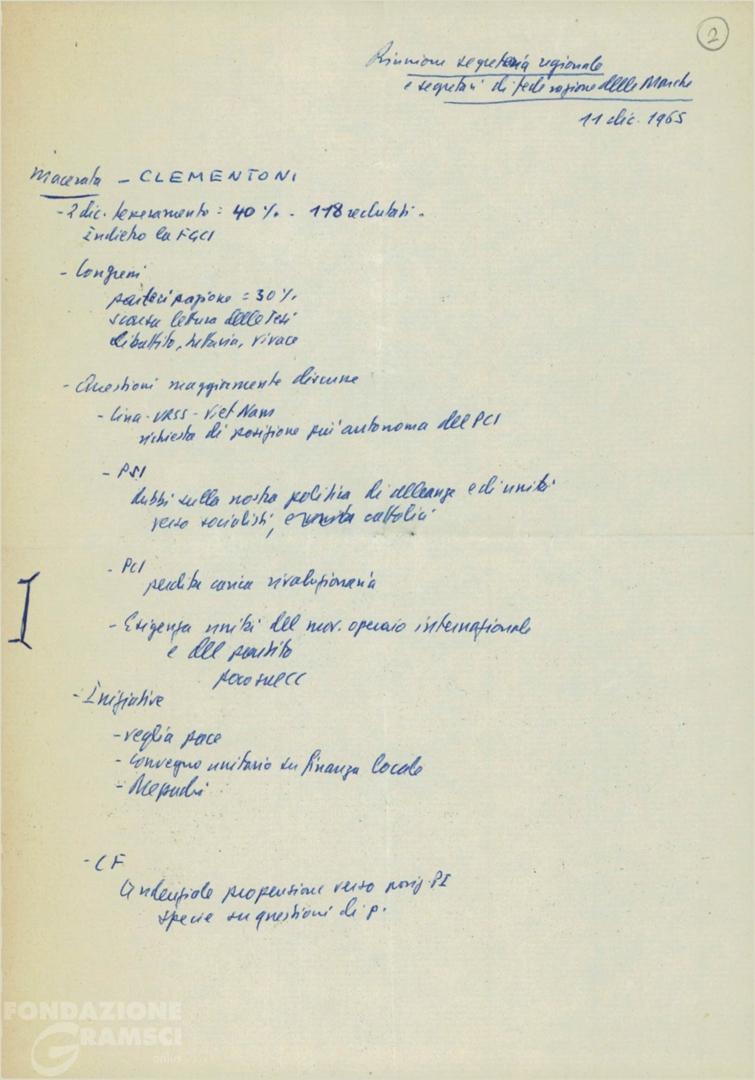 2
Riunione segreteria regionale
e segretari di federazione delle Marche
11 dic. 1965
Macerata - CLEMENTONI
- 2 dic. tesseramento = 40% - 118 reclutati.
Indietro la FGCI
- Congressi
partecipazione = 30%
scarsa lettura delle Tesi
dibattito, tuttavia, vivace
- Questioni maggiormente discusse
- Cina - URSS - Viet Nam
richiesta di posizione più autonoma del PCI
- PSI
dubbi sulla nostra politica di alleanze e di unità
verso socialisti, e cattolici
- PCI
perdita carica rivoluzionaria
- Esigenza unità del mov. operaio internazionale
e del partito
poco
- Iniziative
- veglia pace
- Convegno unitario su finanza locale
- CF
tendenziale propensione verso posiz. PI
specie su questioni di p.
FONDAZIONE
GRAMSCI
onlus